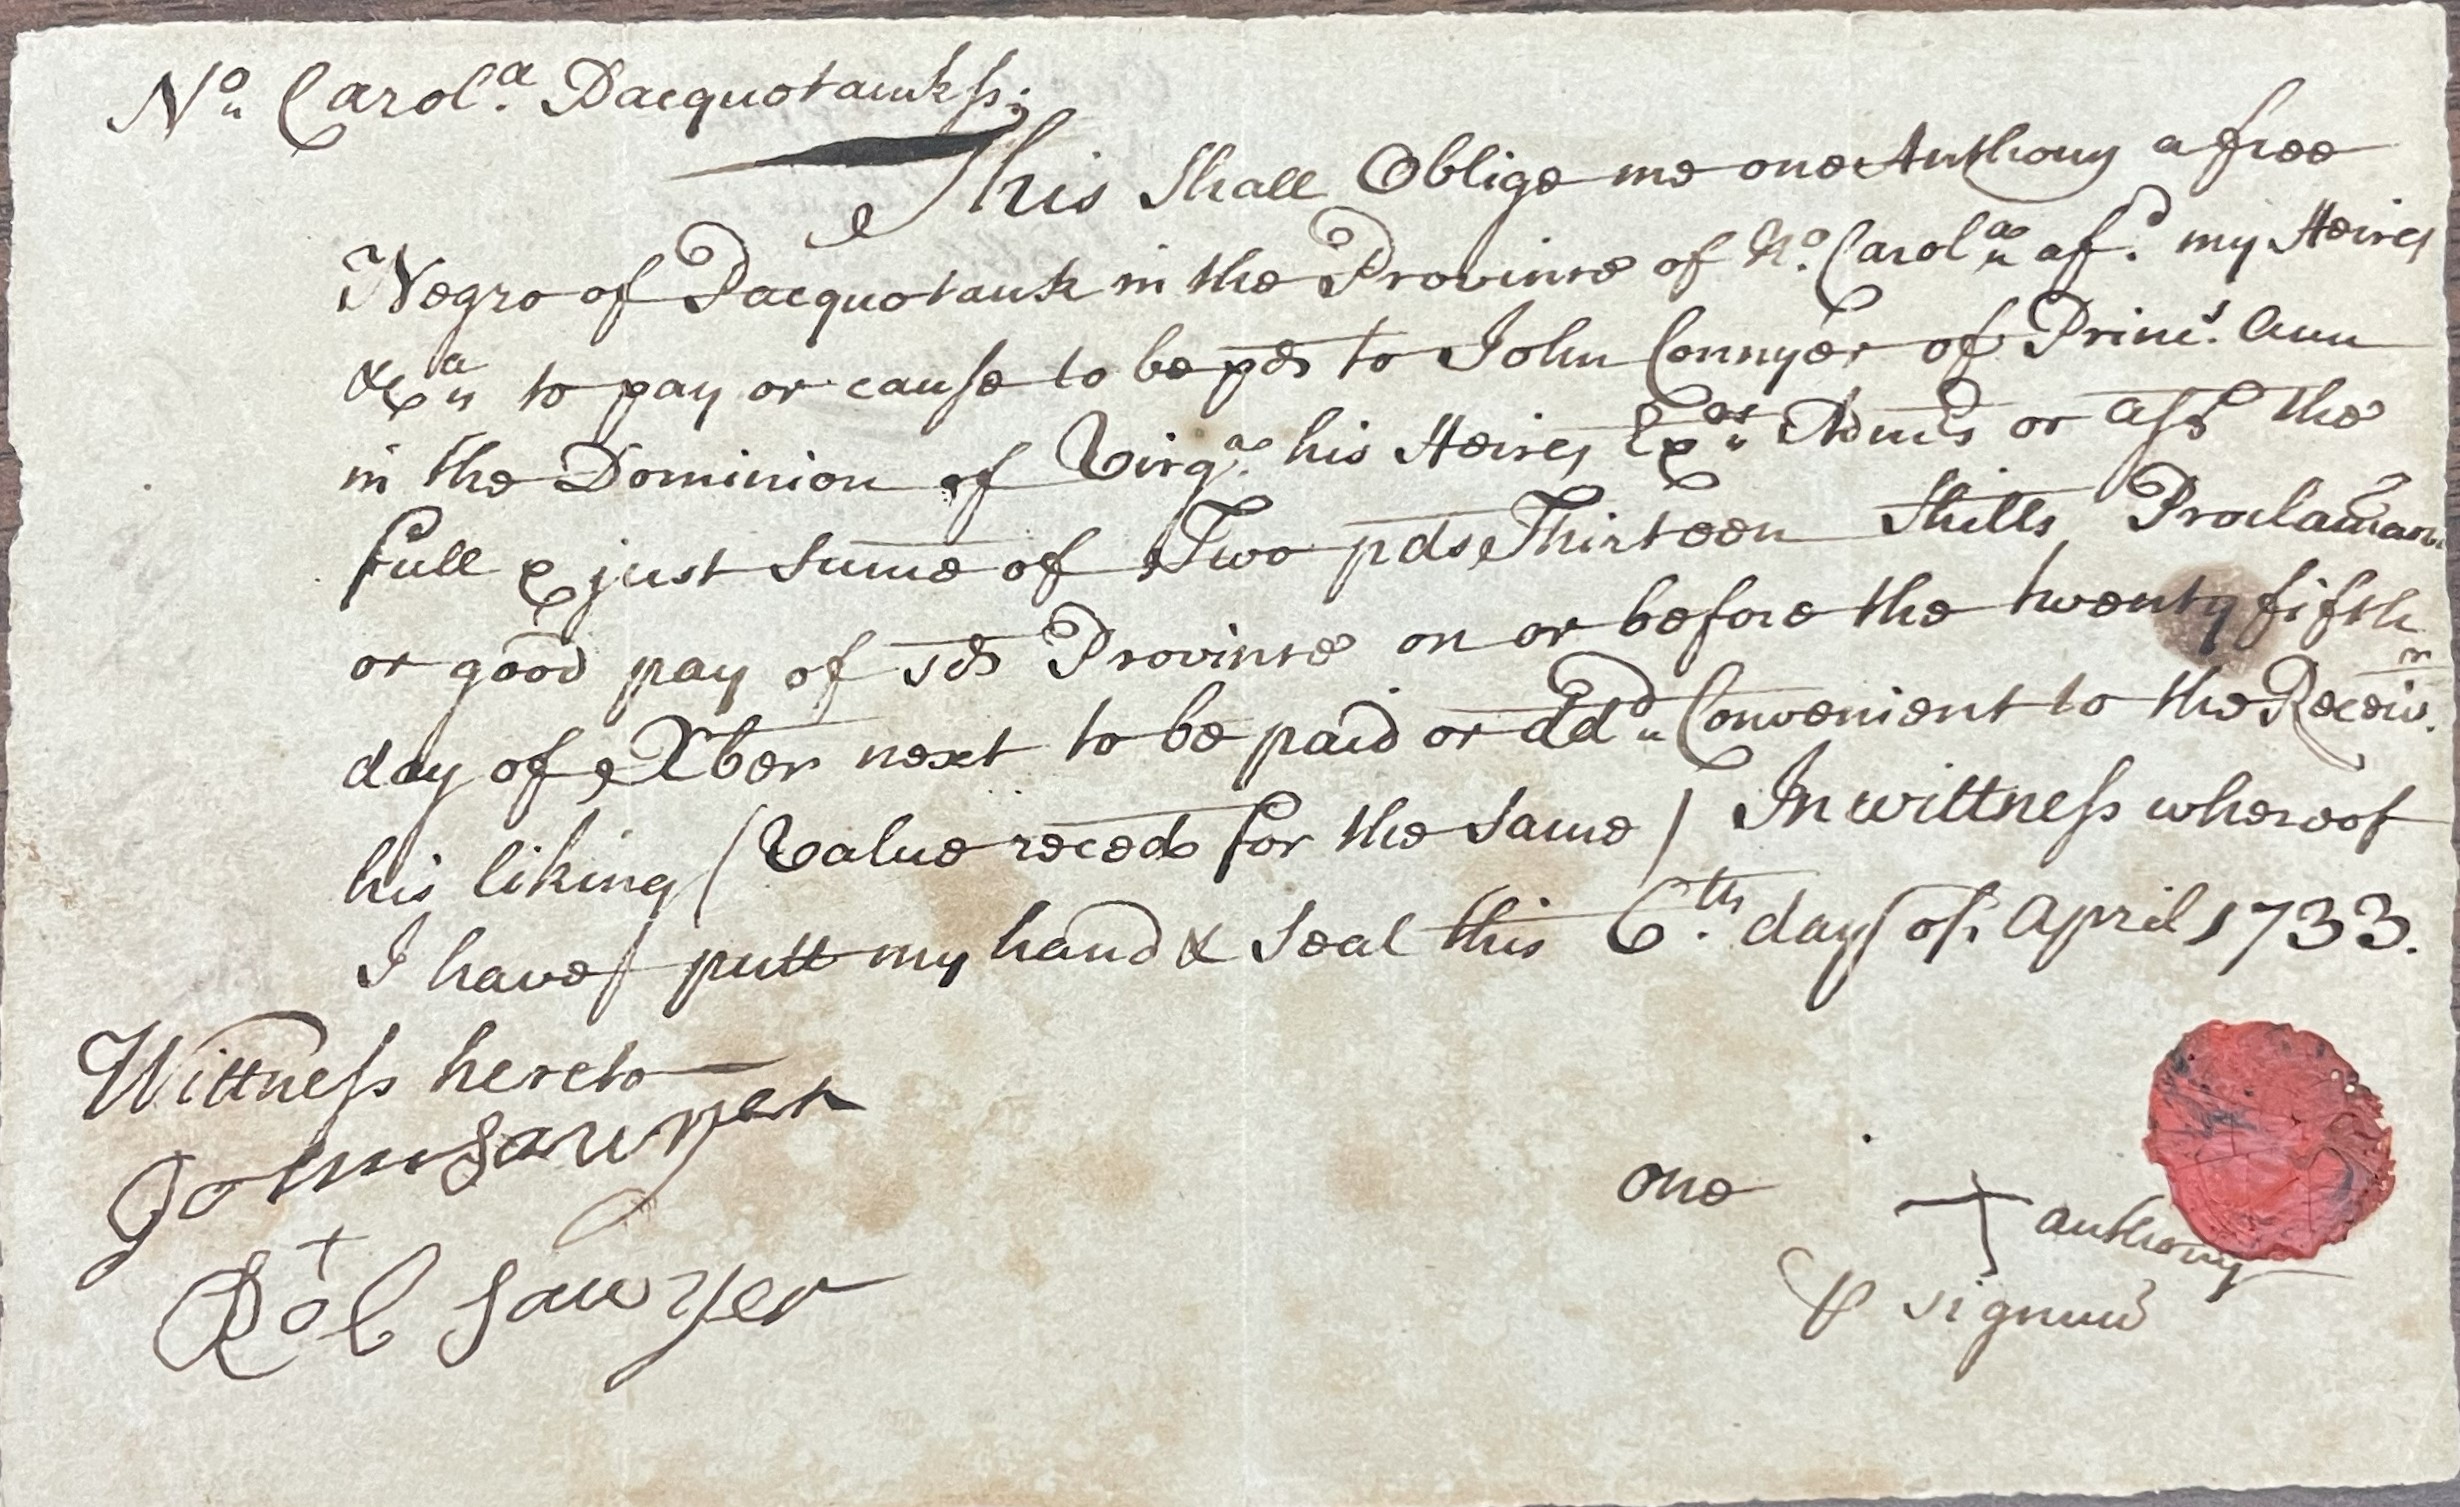 No Carola. Pacquotank ss;
This shall Oblige me one Anthony a free
Negro of Pacquotank in the Province of No. Carola afd. my Heires
&ca to pay or cause to be pd to John Connyer of Prins. Ann
in the Dominion of Virga. his Heires Exors Admrs or ass the
full & just sume of Two pds Thirteen Shills Proclamaon
or good pay of sd Province on or before the twenty fifth
day of Xber next to be paid or dd Convenient to the Receivr
his liking (Value recd for the same) In wittness whereof
I have putt my hand & seal this 6th. day of April 1733.
Wittness hereto
John Sawyer
Rob Sawyer
one + anthony
signum